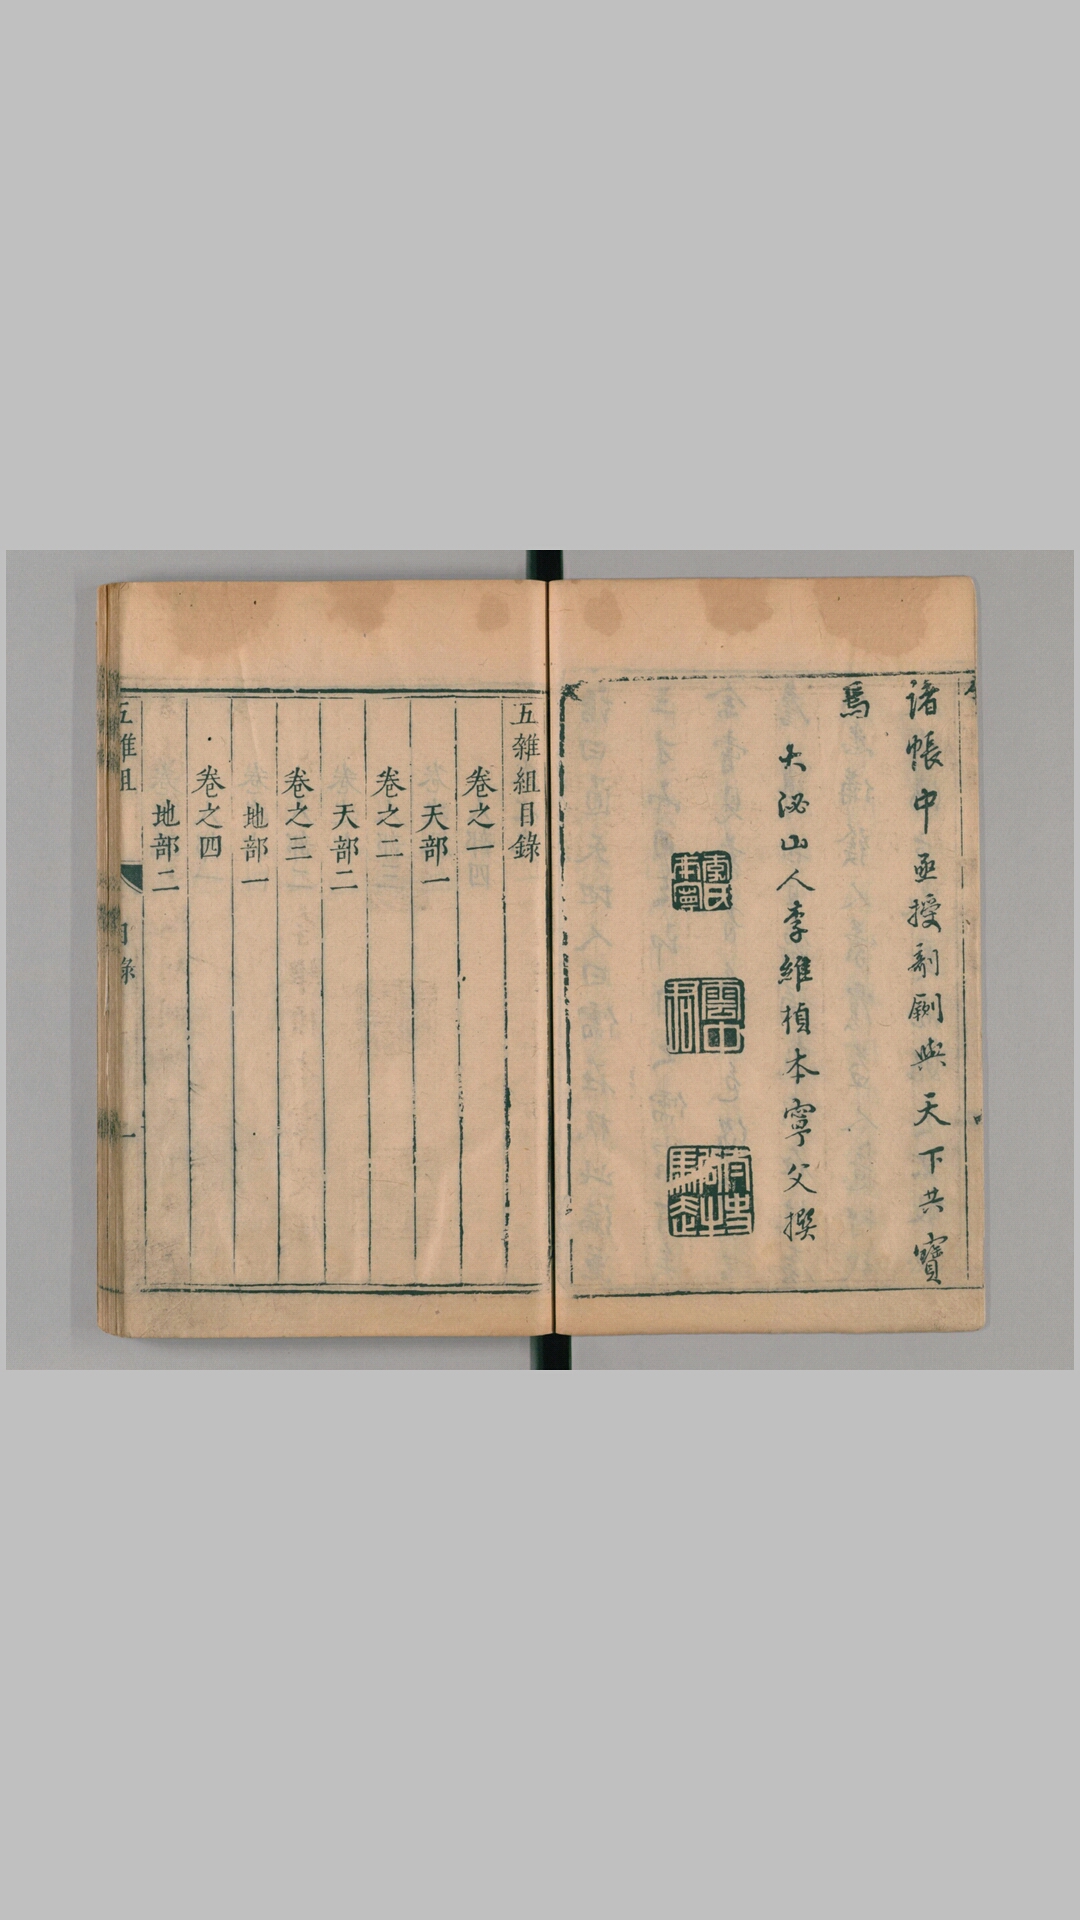 諸帳中亟授剞劂與天下共寶
焉
大泌山人李維楨本寧父撰
李氏本寧
雲中君
五雜組目錄
卷之一
天部一
卷之二
天部二
卷之三
地部一
卷之四
地部二
五雜組
目錄
一